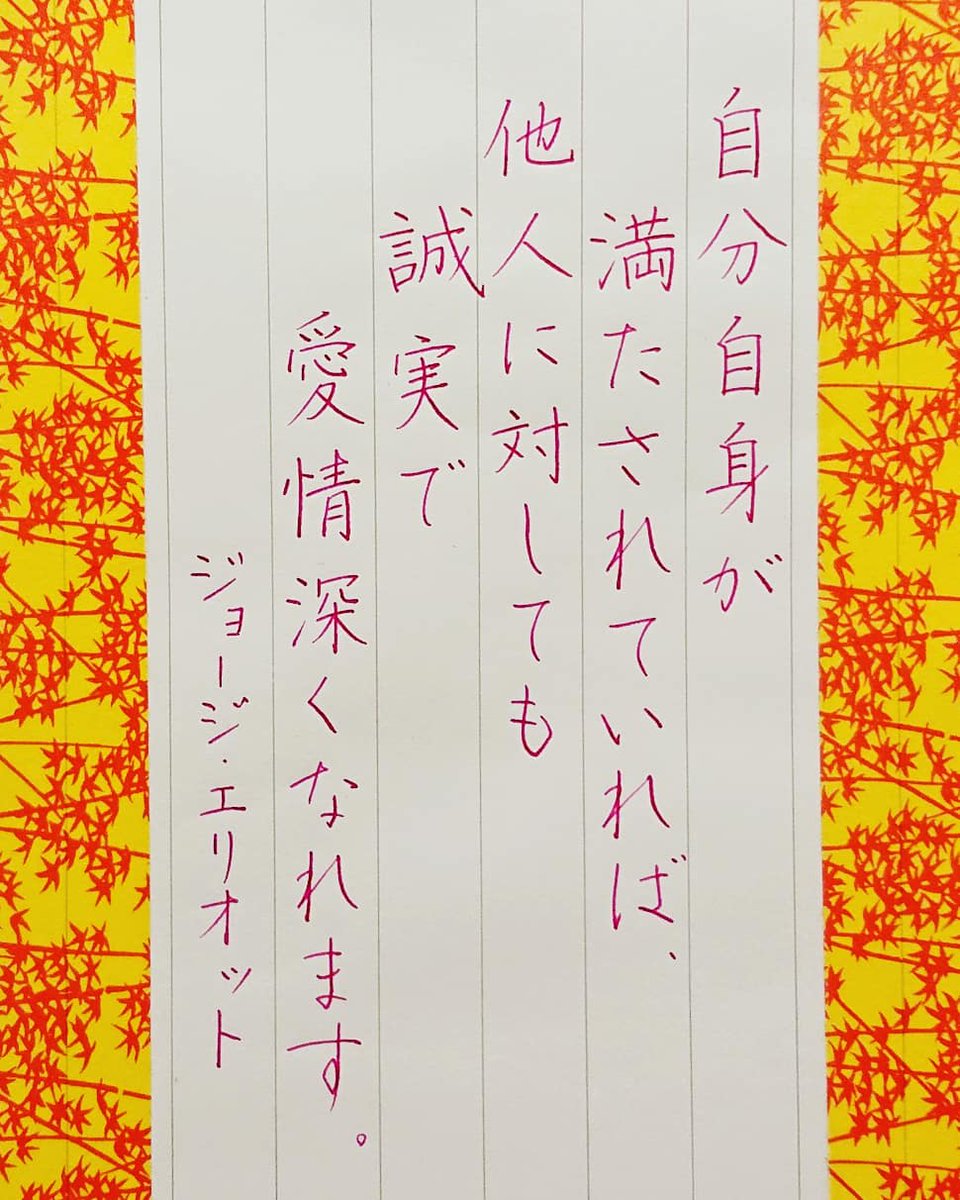 自分自身が
満たされていれば、
他人に対しても
誠実で
愛情深くなれます。
ジョージ・エリオット